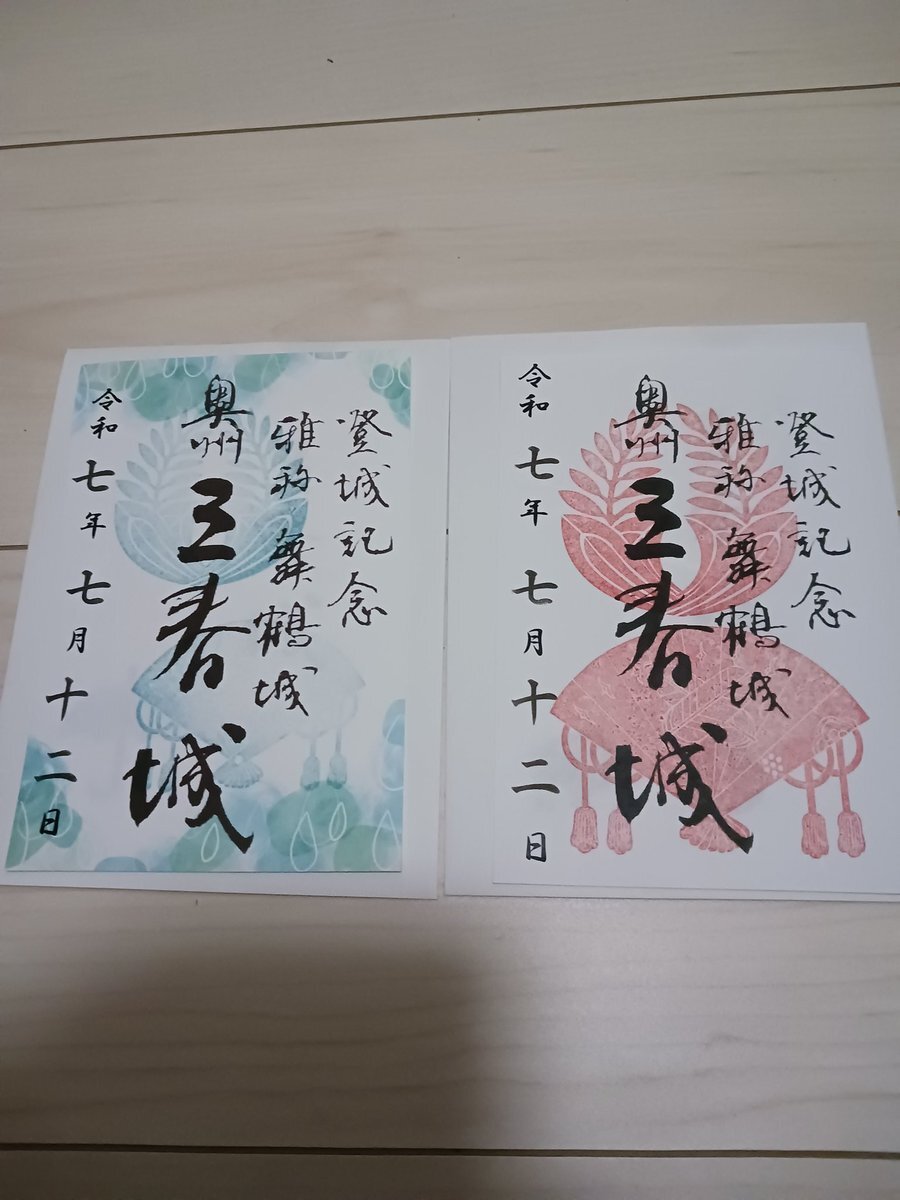 登城記念
雅称 舞鶴城
奥州 三春城
令和七年七月十二日
登城記念
雅称 舞鶴城
奥州 三春城
令和七年七月十二日